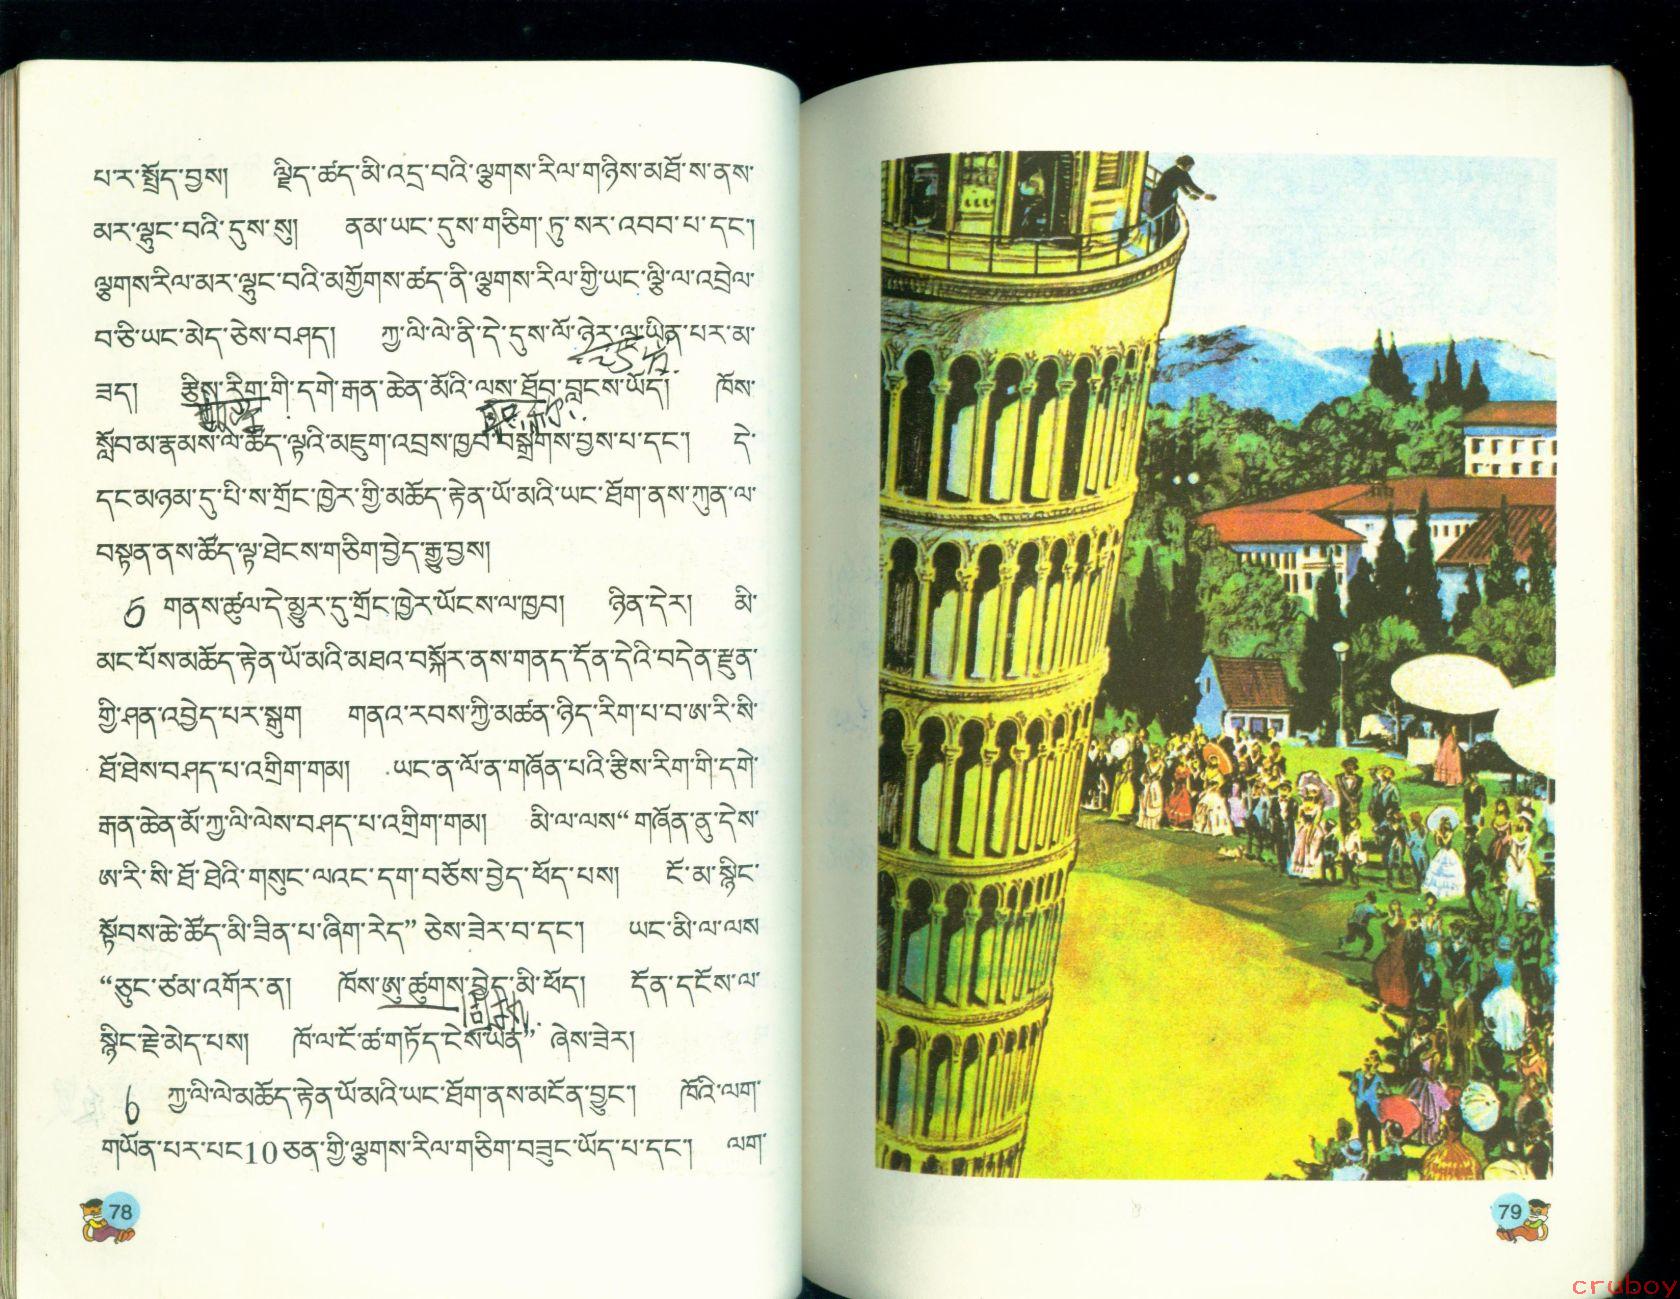 པ་ར་སྤྲོད་བྱས། ལྗིད་ཚད་མི་འདྲ་བའི་ལྕགས་རིལ་གཉིས་མཐོ་ས་ནས་
མར་ལྷུང་བའི་དུས་སུ། ནམ་ཡང་དུས་གཅིག་ཏུ་སར་འབབ་པ་དང་།
ལྕགས་རིལ་མར་ལྷུང་བའི་མགྱོགས་ཚད་ནི་ལྕགས་རིལ་གྱི་ཡང་ལྕི་ལ་འབྲེལ་
བ་ཅི་ཡང་མེད་ཅེས་བཤད། ཀྱ་ལི་ལེ་ནི་དེ་དུས་ལོ་ཉེར་ལྔ་ཡིན་པར་མ་
ཟད། རྩིས་རིག་གི་དགེ་རྒན་ཆེན་མོའི་ལས་ཐོབ་བླངས་ཡོད། ཁོས་
སློབ་མ་རྣམས་ལ་ཚོད་ལྟའི་མཇུག་འབྲས་ཁྱབ་བསྒྲགས་བྱས་པ་དང་། དེ་
དང་མཉམ་དུ་པི་ས་གྲོང་ཁྱེར་གྱི་མཆོད་རྟེན་ཡོ་མའི་ཡང་ཐོག་ནས་ཀུན་ལ་
བསྟན་ནས་ཚོད་ལྟ་ཐེངས་གཅིག་བྱེད་རྒྱུ་བྱས།
5 གནས་ཚུལ་དེ་མྱུར་དུ་གྲོང་ཁྱེར་ཡོངས་ལ་ཁྱབ། ཉིན་དེར། མི་
མང་པོས་མཆོད་རྟེན་ཡོ་མའི་མཐའ་བསྐོར་ནས་གནད་དོན་དེའི་བདེན་རྫུན་
གྱི་ཤན་འབྱེད་པར་སྒུག གནའ་རབས་ཀྱི་མཚན་ཉིད་རིག་པ་བ་ཨ་རི་སི་
ཐོ་ཐེས་བཤད་པ་འགྲིག་གམ། ཡང་ན་ལོ་ན་གཞོན་པའི་རྩིས་རིག་གི་དགེ་
རྒན་ཆེན་མོ་ཀྱ་ལི་ལེས་བཤད་པ་འགྲིག་གམ། མི་ལ་ལས“གཞོན་ནུ་དེས་
ཨ་རི་སི་ཐོ་ཐེའི་གསུང་ལའང་དག་བཅོས་བྱེད་ཕོད་པས། ངོ་མ་སྙིང་
སྟོབས་ཆེ་ཚོད་མི་ཟིན་པ་ཞིག་རེད”ཅེས་ཟེར་བ་དང་། ཡང་མི་ལ་ལས
“ཅུང་ཙམ་འགོར་ན། ཁོས་ཨུ་ཚུགས་བྱེད་མི་ཕོད། དོན་དངོས་ལ་
སྙིང་རྗེ་མེད་པས། ཁོ་ལ་ངོ་ཚ་གཏོད་ངེས་ཡིན” ཞེས་ཟེར།
6 ཀྱ་ལི་ལེ་མཆོད་རྟེན་ཡོ་མའི་ཡང་ཐོག་ནས་མངོན་བྱུང་། ཁོའི་ལག་
གཡོན་པར་པང10ཅན་གྱི་ལྕགས་རིལ་གཅིག་བཟུང་ཡོད་པ་དང་། ལག་
78
79
cruboy